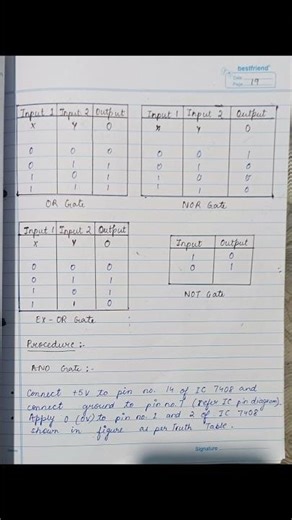 bestfriend
Date
Page 19
Input 1 Input 2 Output
X Y O
0 0 0
0 1 1
1 0 1
1 1 1
OR Gate
Input 1 Input 2 Output
X Y O
0 0 1
0 1 0
1 0 0
1 1 0
NOR Gate
Input 1 Input 2 Output
X Y O
0 0 0
0 1 1
1 0 1
1 1 0
Ex-OR Gate
Input Output
1 0
0 1
NOT Gate
Procedure :-
AND Gate :-
Connect +5V to pin no. 14 of IC 7408 and
connect ground to pin no. 7 (Refer IC pin diagram).
Apply 0 (0V) to pin no. 1 and 2 of IC 7408
shown in figure as per Truth Table.
Signature